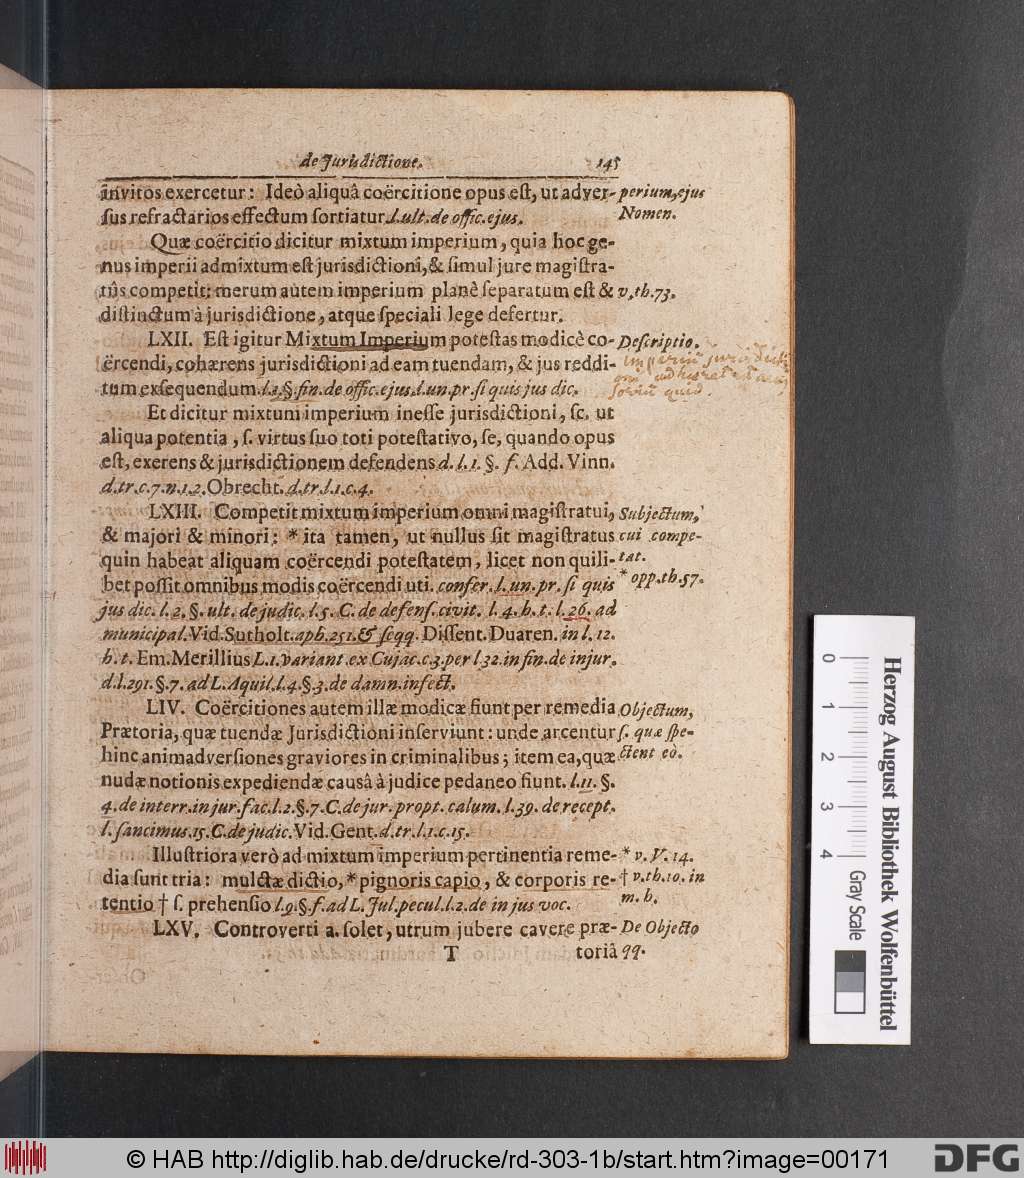 de Jurisdictione. 145
invitos exercetur: Ideò aliquâ coërcitione opus est, ut adver-
sus refractarios effectum sortiatur. l. ult. de offic. ejus.
perium, ejus
Nomen.
Quæ coërcitio dicitur mixtum imperium, quia hoc ge-
nus imperii admixtum est jurisdictioni, & simul jure magistra-
tûs competit: merum autem imperium planè separatum est &
v. th. 73.
distinctum à jurisdictione, atque speciali lege defertur.
LXII. Est igitur Mixtum Imperium potestas modicè co-
Descriptio.
ërcendi, cohærens jurisdictioni ad eam tuendam, & jus reddi-
tum exsequendum. l. 1. §. fin. de offic. ejus. l. un. pr. si quis jus dic.
Et dicitur mixtum imperium inesse jurisdictioni, sc. ut
aliqua potentia, s. virtus suo toti potestativo, se, quando opus
est, exerens & jurisdictionem defendens d. l. 1. §. f. Add. Vinn.
d. tr. c. 7. n. 1. 2. Obrecht. d. tr. l. 1. c. 4.
LXIII. Competit mixtum imperium omni magistratui,
& majori & minori: * ita tamen, ut nullus sit magistratus
quin habeat aliquam coërcendi potestatem, licet non quili-
bet possit omnibus modis coërcendi uti. confer. l. un. pr. si quis
Subjectum,
cui compe-
tat.
* opp. th. 57.
jus dic. l. 2. §. ult. de judic. l. 5. C. de defens. civit. l. 4. h. t. l. 26. ad
municipal. Vid. Sutholt. aph. 251. & seqq. Dissent. Duaren. in l. 12.
h. t. Em. Merillius L. 1. variant. ex Cujac. c. 3. per l 32. in fin. de injur.
d. l. 291. §. 7. ad L. Aquil. l. 4. §. 3. de damn. infect.
LIV. Coërcitiones autem illæ modicæ fiunt per remedia
Prætoria, quæ tuendæ Jurisdictioni inserviunt: unde arcentur
hinc animadversiones graviores in criminalibus; item ea, quæ
Objectum,
s. quæ spe-
ctent eò.
nudæ notionis expediendæ causâ à judice pedaneo fiunt. l. 11. §.
4. de interr. in jur. fac. l. 2. §. 7. C. de jur. propt. calum. l. 39. de recept.
l. sancimus. 15. C. de judic. Vid. Gent. d. tr. l. 1. c. 15.
Illustriora verò ad mixtum imperium pertinentia reme-
dia sunt tria: mulctæ dictio, * pignoris capio, & corporis re-
tentio † s. prehensio l. 9. §. f. ad L. Jul. pecul. l. 2. de in jus voc.
* v. V. 14.
† v. th. 10. in
m. h.
LXV. Controverti a. solet, utrum jubere cavere præ-
De Objecto
T toriâ
qq.
Herzog August Bibliothek Wolfenbüttel
0 1 2 3 4
Gray Scale
© HAB http://diglib.hab.de/drucke/rd-303-1b/start.htm?image=00171
DFG